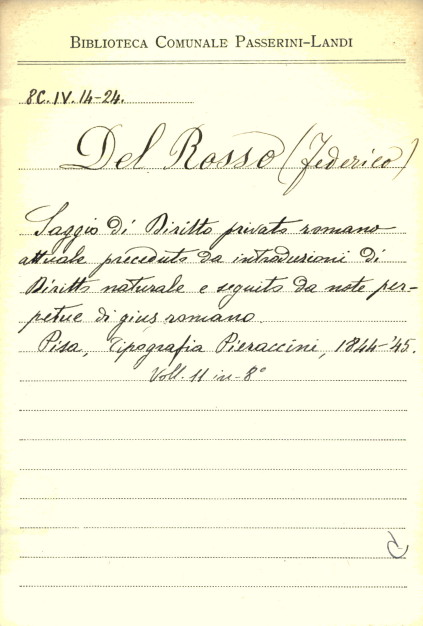 BIBLIOTECA COMUNALE PASSERINI-LANDI
8C.IV.14-24.
Del Rosso (Federico)
Saggio di Diritto privato romano
attuale preceduto da introduzioni di
Diritto naturale e seguito da note per-
petue di gius romano.
Pisa, Tipografia Pieraccini, 1844-'45.
Voll. 11 in-8°